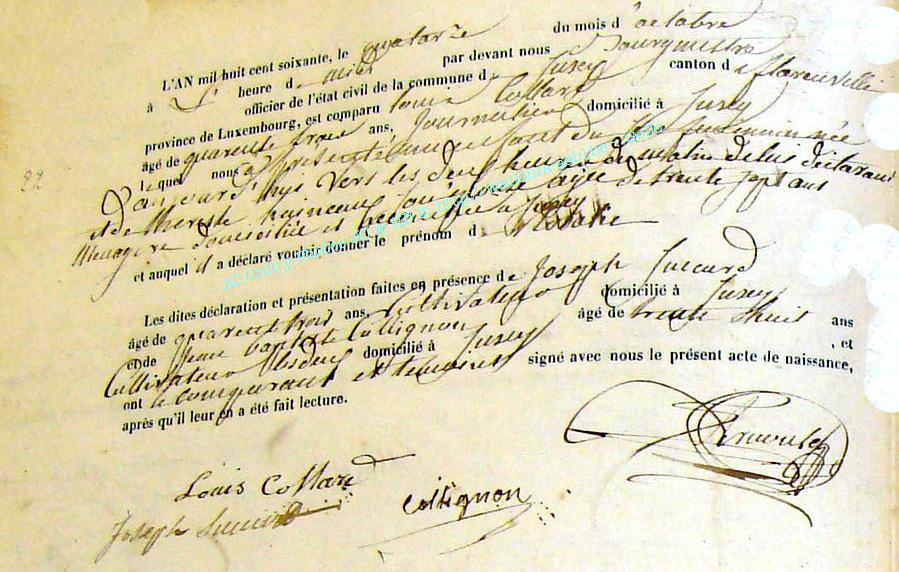 22
L'AN mil huit cent soixante, le quatorze du mois d'octobre
à l' heure d midi par devant nous Bourgmestre
officier de l'état civil de la commune d Jusey canton de Florenville
province de Luxembourg, est comparu Louis Collard
âgé de quarante trois ans, Journalier domicilié à Jusey
lequel nous a présenté un enfant du sexe feminin née
aujourd'huy vers les deux heures du matin de lui déclarant
et de Therese hainceaux son épouse agée de trente sept ans
Menagere domiciliée et à Jusey
et auquel il a déclaré vouloir donner le prénom d
Les dites déclaration et présentation faites en présence de Joseph
âgé de quarante trois ans, Cultivateur domicilié à Jusey
et de Jean baptiste Collignon âgé de trente huit ans
Cultivateur domicilié à Jusey , et
ont le comparant et temoins signé avec nous le présent acte de naissance,
après qu'il leur en a été fait lecture.
Louis Collard
Collignon
Joseph